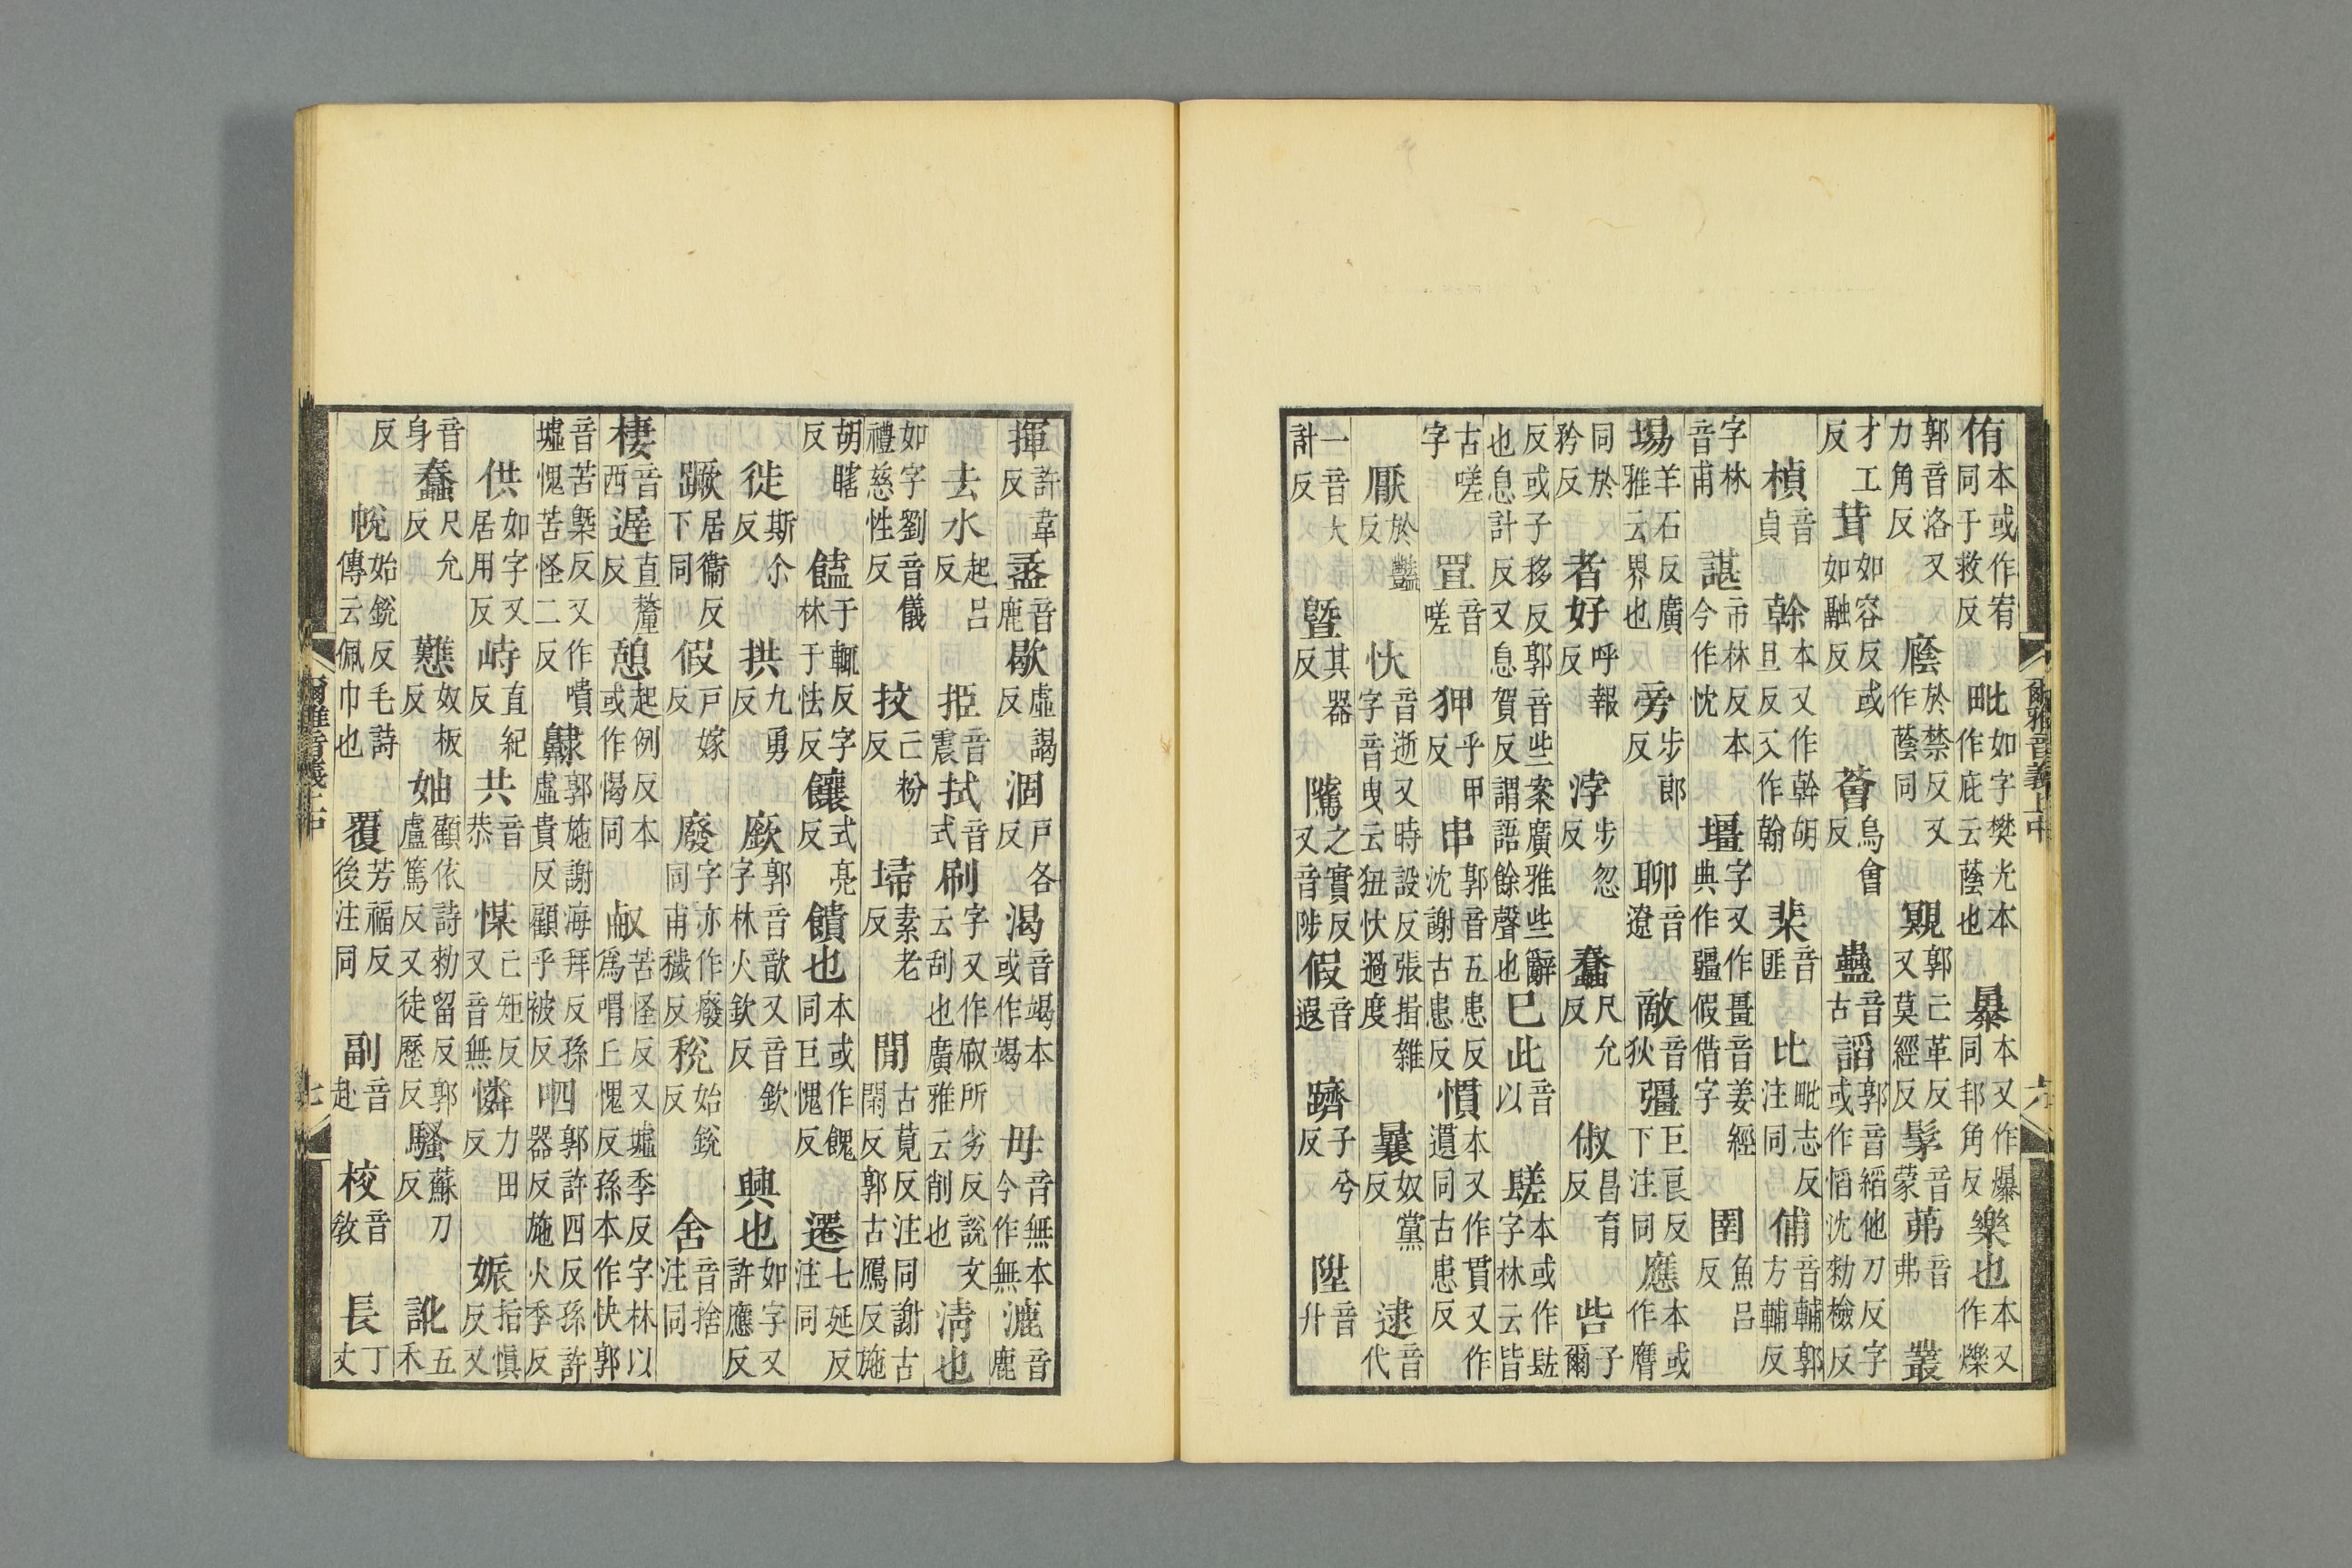 侑本或作宥同于救反毗如字樊光本作庇云蔭也暴本又作爆同邦角反樂也本又作爍
郭音洛又力角反廕於禁反又作蔭同覭郭亡革反又莫經反髳音蒙茀音弗叢
才工反茸如容反或如融反薈烏會反蠱音古謟郭音縚他刀反字或作慆沈勑檢反
楨音貞榦本又作幹胡旦反又作翰棐音匪比毗志反注同俌音輔郭方輔反
字林音甫諶市林反本今作忱壃字又作畺音姜經典作疆假借字圉魚呂反
埸羊石反廣雅云界也旁步郎反聊音遼敵音狄彊巨良反下注同應本或作膺
同於矜反者好呼報反浡步忽反蠢尺允反俶昌育反呰子爾
反或子移反郭音些案廣雅些辭也息計反又息賀反謂語餘聲也已此音以𨲠本或作字林云皆
古嗟字罝音嗟狎乎甲反串郭音五患反沈謝古患反慣本又作貫又作遺同古患反
厭於豔反忕音逝又時設反張揖雜字音曳云狃忕過度曩奴黨反逮音代
一音大計反暨其器反騭之實反又音陟假音遐躋子兮反陞音升
爾雅音義上中 六
揮許韋反盝音鹿歇虛謁反涸戶各反渴音竭本或作竭毋音無本今作無漉音鹿
去水起呂反挋音震拭音式刷字又作㕞所劣反說文云刮也廣雅云削也清也
如字劉音儀禮慈性反抆亡粉反埽素老反閒古莧反注同謝古閑反郭古鴈反施
胡瞎反饁于輒反字林于怯反饟式亮反饋也本或作餽同巨愧反遷七延反注同
徙斯尒反拱九勇反廞郭音歆又音欽字林火欽反興也如字又許應反
蹶居衞反下同假戶嫁反廢字亦作癈同甫穢反稅始銳反舍音捨注同
棲音西遟直釐反憩起例反本或作愒同㕟苦怪反又墟季反字林以爲喟丘愧反孫本作快郭
音苦槩反又作嘳墟愧苦怪二反齂郭施謝海拜反孫虛貴反顧乎被反呬郭許四反孫許器反施火季反
供如字又居用反峙直紀反共音恭㥌亡矩反又音無憐力田反娠指愼反又
音身蠢尺允反戁奴板反妯顧依詩勑留反郭盧篤反又徒歷反騷蘇刀反訛五禾
反帨始銳反毛詩傳云佩巾也覆芳福反後注同副音赴校音敎長丁丈
爾雅音義上中 七